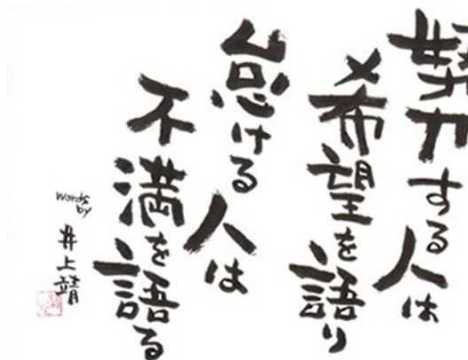 努力する人は
希望を語り
怠ける人は
不満を語る
words by
井上靖